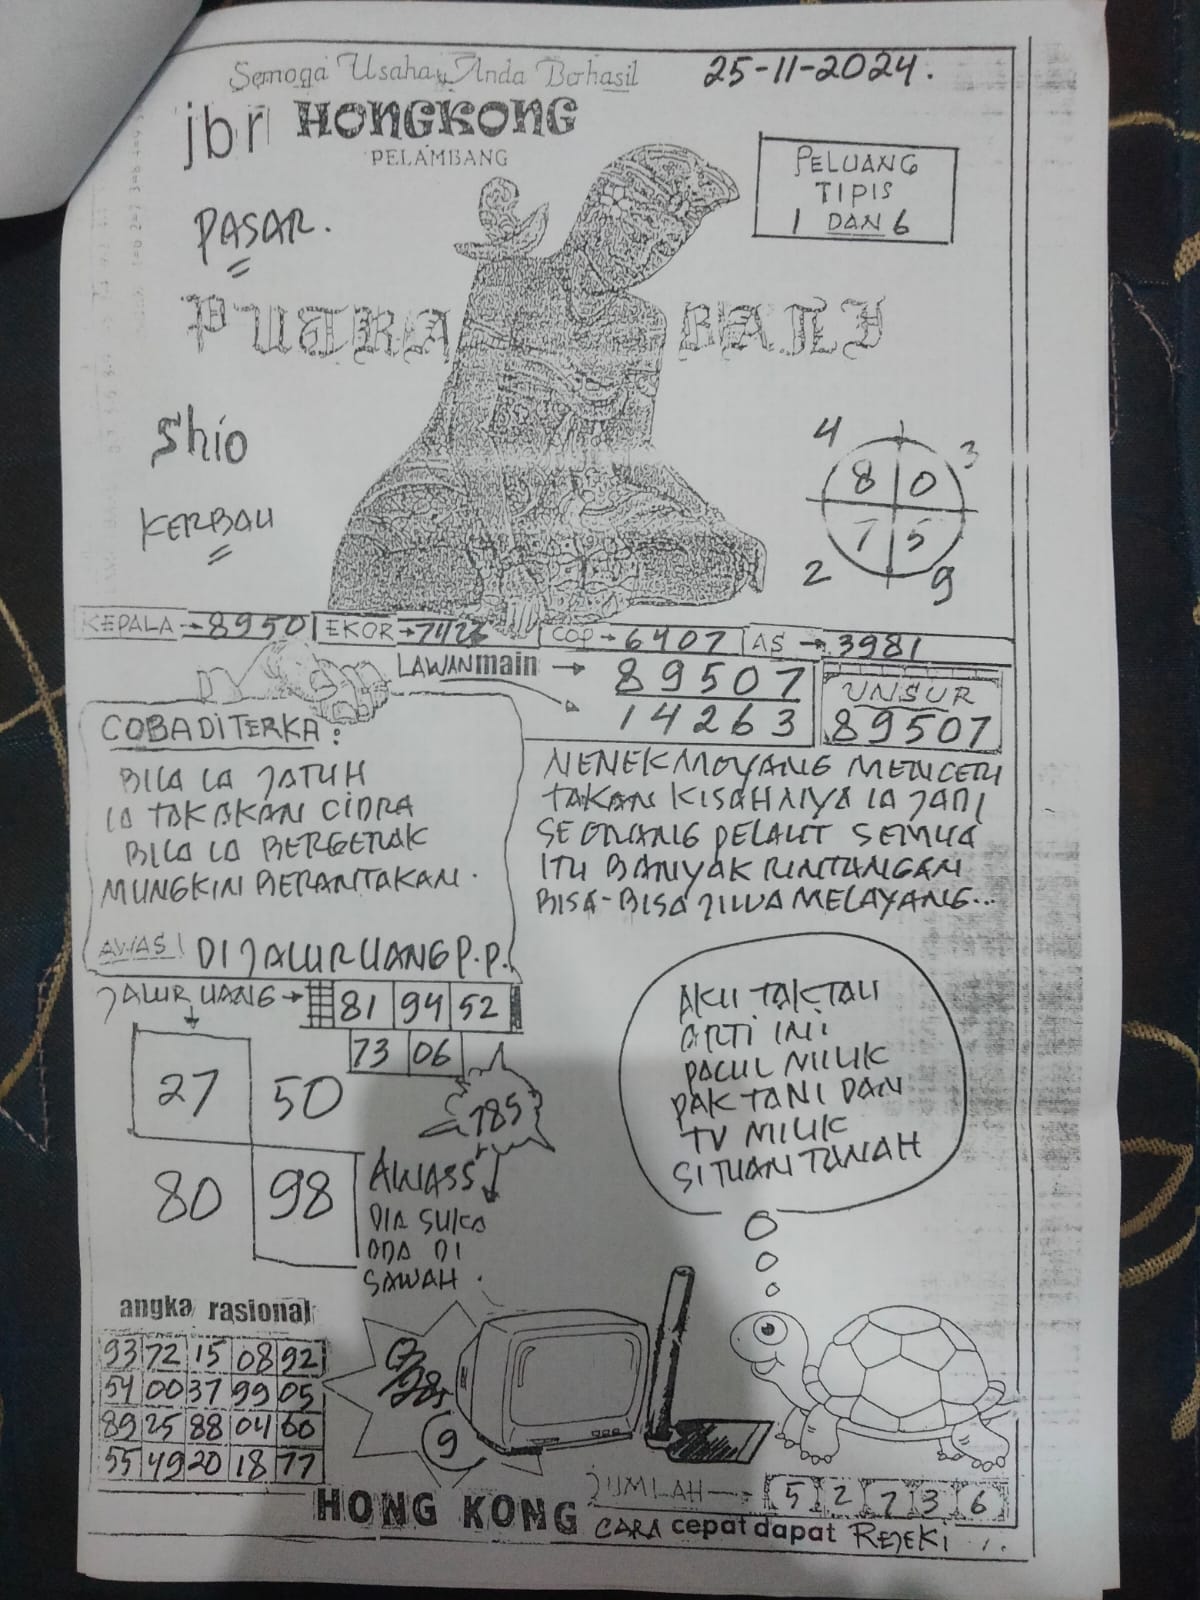 Semoga Usaha Anda Berhasil
25-11-2024.
jbr HONGKONG
PELAMBANG
PELUANG
TIPIS
1 DAN 6
PASAR.
PUTRA BALI
Shio
KERBAU
4 3
8 0
7 5
2 9
KEPALA → 89501 EKOR → COP → 6407 AS → 3981
LAWAN main → 89507
14263
UNSUR
89507
COBA DITERKA :
BILA IA JATUH
IA TAK AKAN CIDRA
BILA IA BERGERAK
MUNGKIN BERANTAKAN.
AWAS! DI JALUR UANG P.P.
NENEK MOYANG MENCERI
TAKAN KISAHNYA IA JADI
SEORANG PELAUT SEMUA
ITU BANYAK RINTANGAN
BISA-BISA JIWA MELAYANG...
JALUR UANG → 81 94 52
73 06
27 50
80 98
785
AWASS
DIA SUKA
ADA DI
SAWAH.
AKU TAK TAU
ARTI INI
PACUL MILIK
PAK TANI DAN
TV MILIK
SI TUAN TANAH
angka rasional
93 72 15 08 92
54 00 37 99 05
89 25 88 04 60
55 49 20 18 77
9
JUMLAH → 5 2 7 3 6
HONG KONG
CARA cepat dapat REJEKI ...